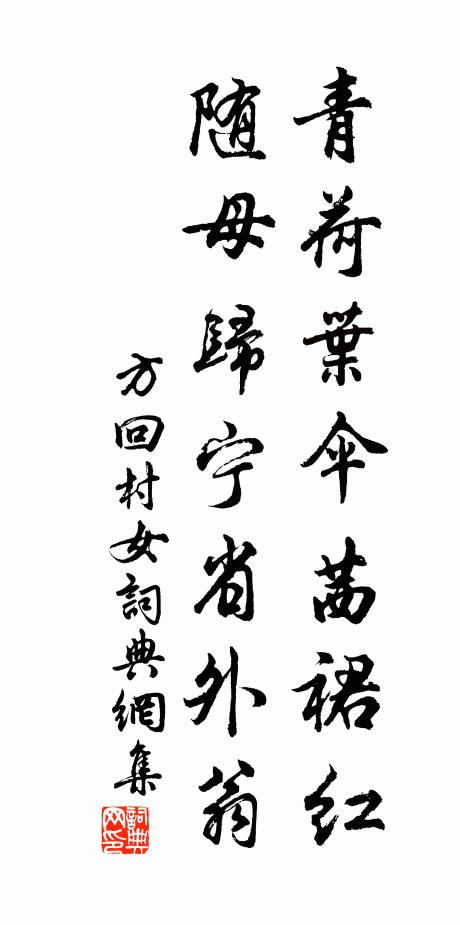 青荷葉伞茜裙红
随母歸宁省外翁
方回村女詞典網集
詞典网印